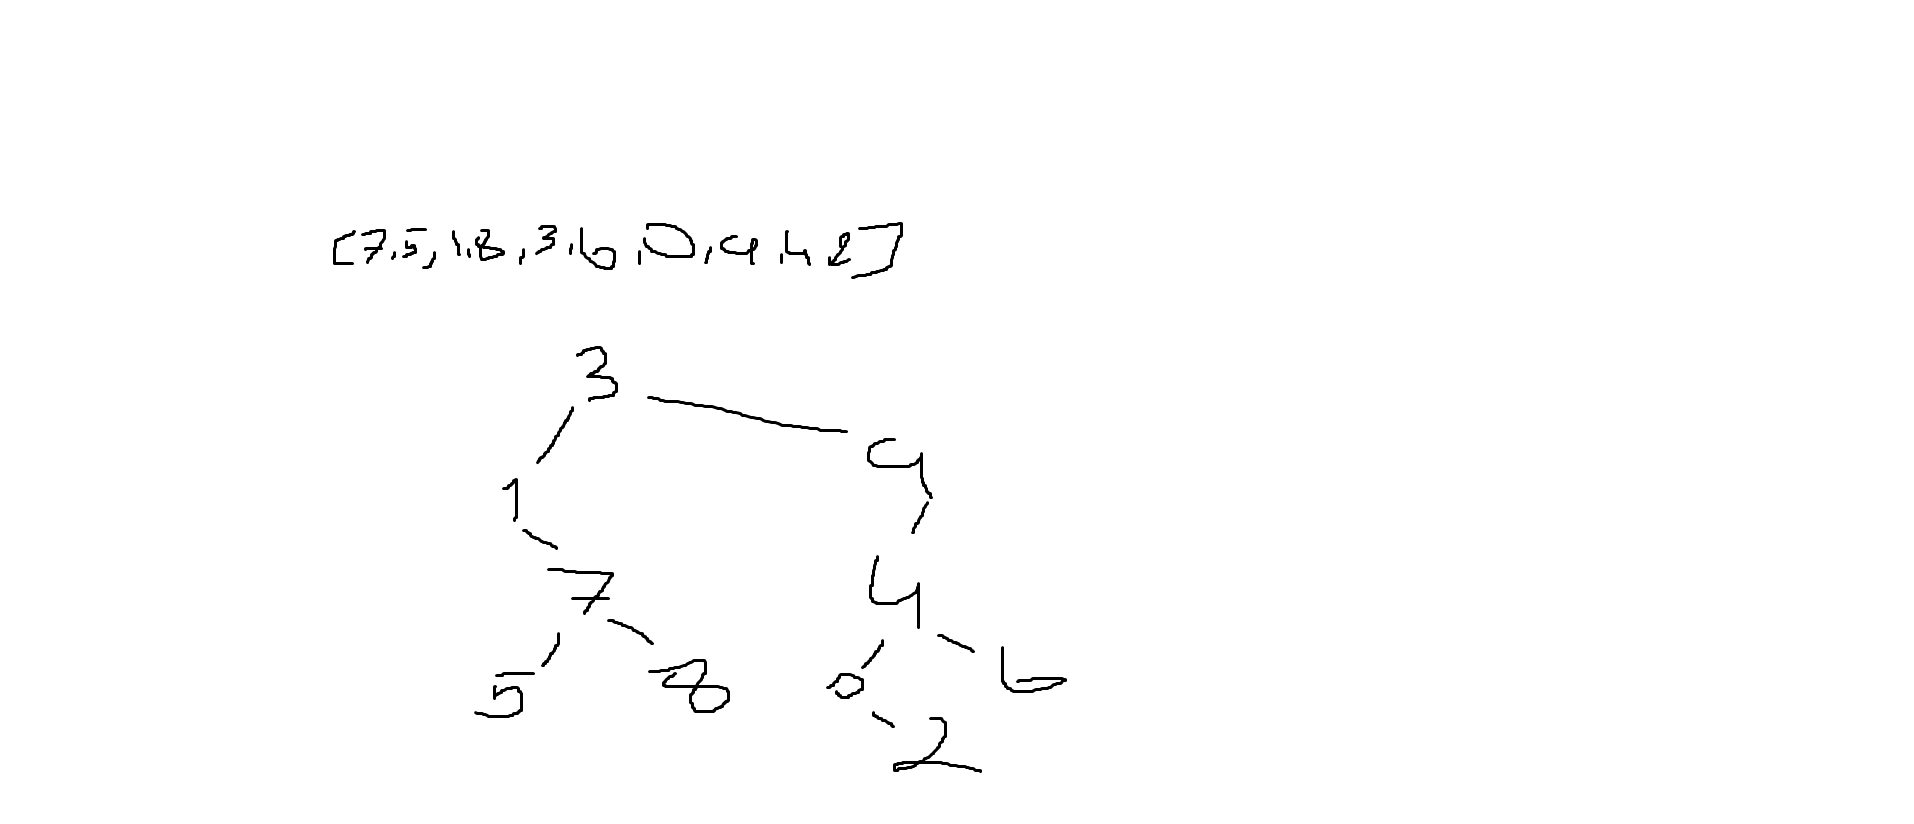 [7,5,1,8,3,6,0,9,4 2]
3
9
1
4
7
5
8
0
6
2